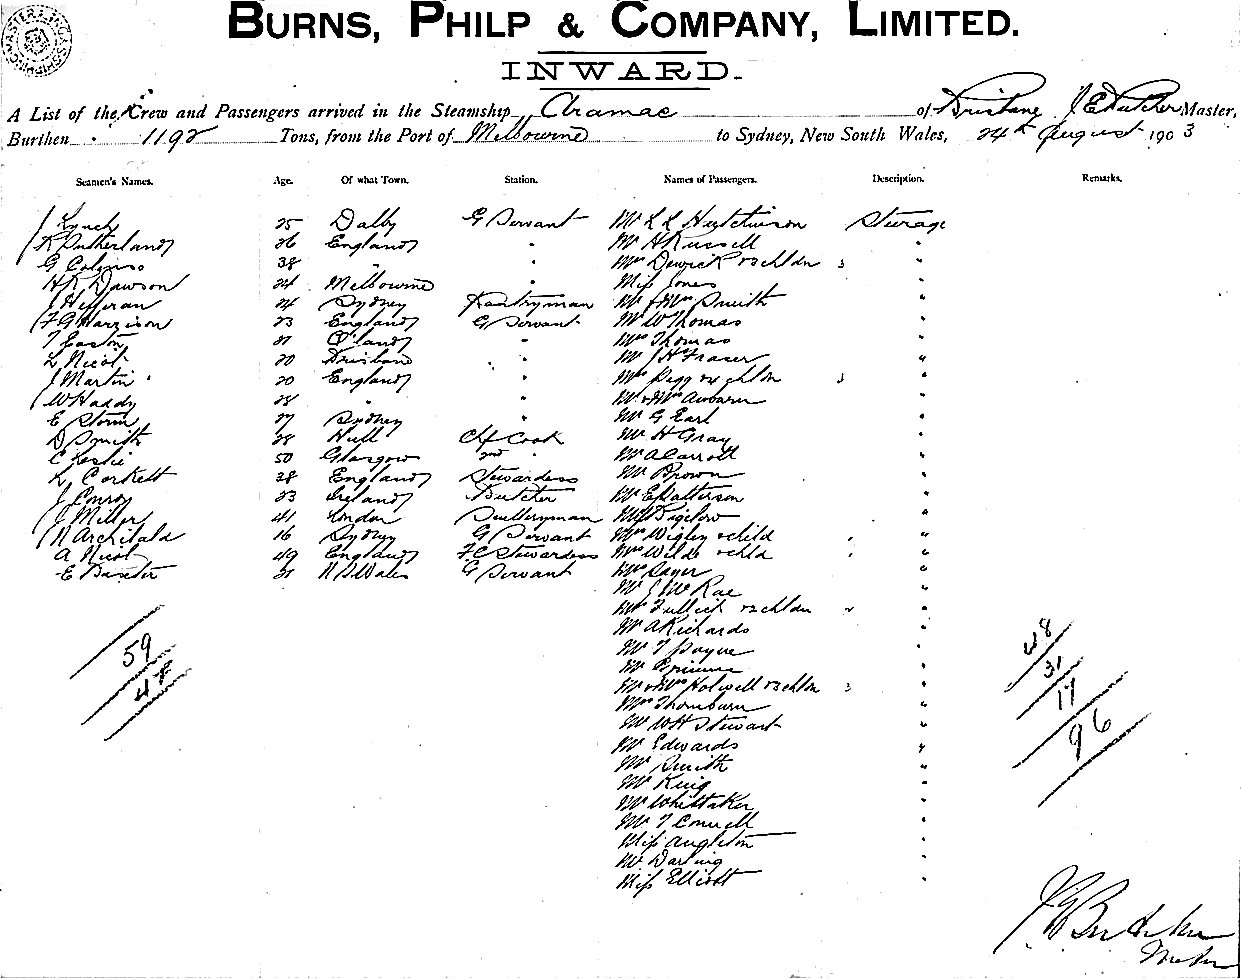 BURNS, PHILP & COMPANY, LIMITED.
INWARD.
A List of the Crew and Passengers arrived in the Steamship Aramac of Brisbane Master,
Burthen 1192 Tons, from the Port of Melbourne to Sydney, New South Wales, 24th August 1903
Seamen's Names. Age. Of what Town. Station. Names of Passengers. Description. Remarks.
Lynch 25 Dalby G Servant Mr L L Hutchinson Sturage
K Sutherland 26 England " Mr H Russell "
G 38 " " Mrs & chldn 3 "
H R Dawson 24 Melbourne " Miss Jones "
J Heffran 24 Sydney Pantryman Mr & Mrs Smith "
F G Harrison 23 England G Servant Mr W Thomas "
T Easton 21 Q'land " Mrs Thomas "
L Nicol 20 Brisbane " Mr J H Fraser "
J Martin 20 England " Mrs Pegg & chldn 3 "
W Haddy 28 " " Mr & Mrs Auburn "
E Storm 27 Sydney " Mr G Earl "
D Smith 28 Hull Chf Cook Mr H Gray "
C Leslie 50 Glasgow 2nd " Mr A Carroll "
L Corkett 38 England Stewardess Mr Brown "
J Conroy 23 Ireland Butcher Mr E Patterson "
J Miller 41 London Sculleryman Bigelow "
N Archibald 16 Sydney G Servant Mrs Wigley & child 1 "
A Nicol 49 England F C Stewardess Mrs Wilde & chld 1 "
E Baxter 21 N S Wales G Servant Mrs Sayer "
Mr J McRae "
Mrs Tulloch & chldn 2 "
Mr A Richards "
59 Mr T Payne " 48
48 Mr " 31
Mr & Mrs Holwell & chldn 3 " 17
Mrs Thornburn " 96
Mr W H Stewart "
Mr Edwards "
Mr Smith "
Mr King "
Mr Whittaker "
Mr T Connell "
Miss Angleton "
Mr Darling "
Miss Elliott "
Master